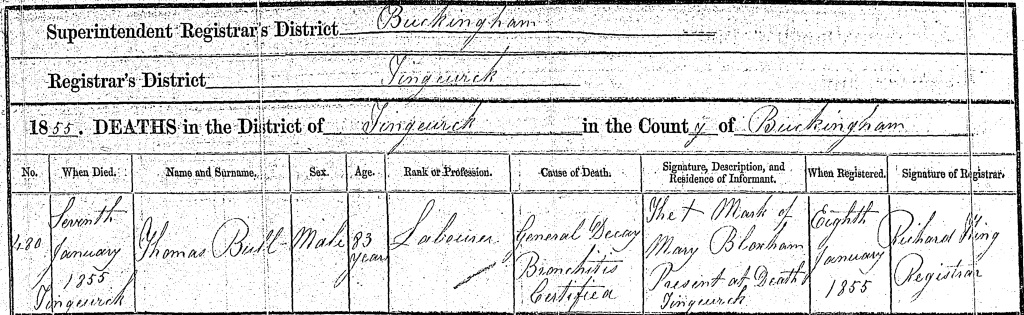 Superintendent Registrar's District Buckingham
Registrar's District Tingewick
1855. DEATHS in the District of Tingewick in the County of Buckingham
No. When Died. Name and Surname. Sex. Age. Rank or Profession. Cause of Death. Signature, Description, and Residence of Informant. When Registered. Signature of Registrar.
480
Seventh
January
1855
Tingewick
Thomas Bull
Male
83
years
Labourer
General Decay
Bronchitis
Certified
The + Mark of
Mary Bloxham
Present at Death
Tingewick
Eighth
January
1855
Richard King
Registrar